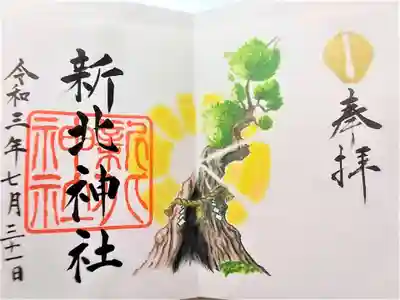 奉拝
新北神社
新北
神社
令和三年七月三十一日